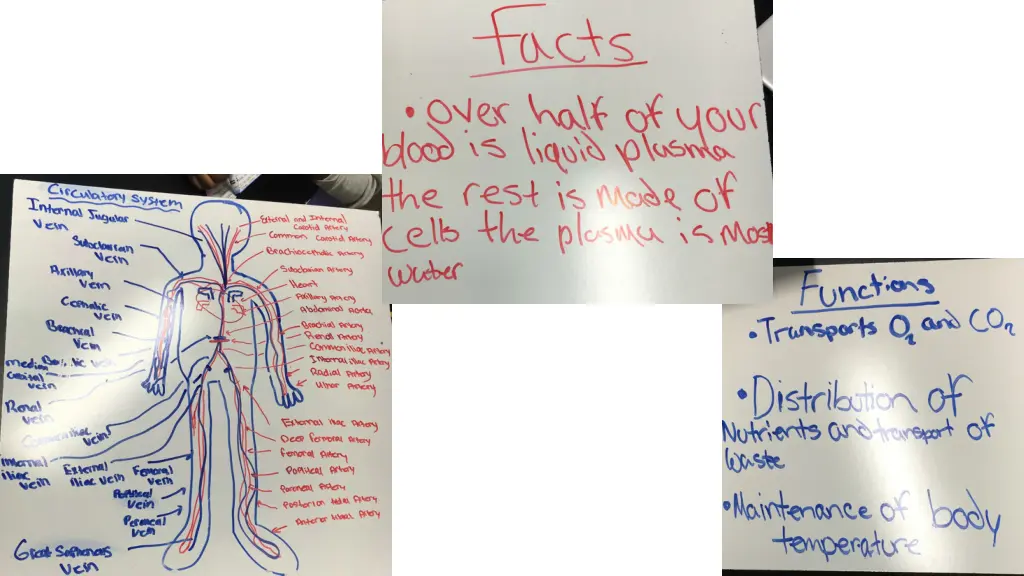 Circulatory System
Internal Jugular
Vein
Subclavian
Vein
Axillary
Vein
Cephalic
Vein
Brachial
Vein
median
Vein
Renal
Vein
Vein
Internal
iliac
Vein
External
iliac Vein
Femoral
Vein
Vein
Vein
Great
Vein
External and Internal
Carotid Artery
Common Carotid Artery
Artery
Subclavian Artery
Heart
Axillary Artery
Abdominal Aorta
Brachial Artery
Renal Artery
Common iliac Artery
Internal iliac Artery
Radial Artery
Ulnar Artery
External iliac Artery
Deep Femoral Artery
Femoral Artery
Artery
Artery
Posterior Artery
Anterior Artery
Facts
• Over half of your
blood is liquid plasma
the rest is made of
cells the plasma is Most
water
Functions
• Transports O2 and CO2
• Distribution of
Nutrients and transport of
waste
• Maintenance of body
temperature